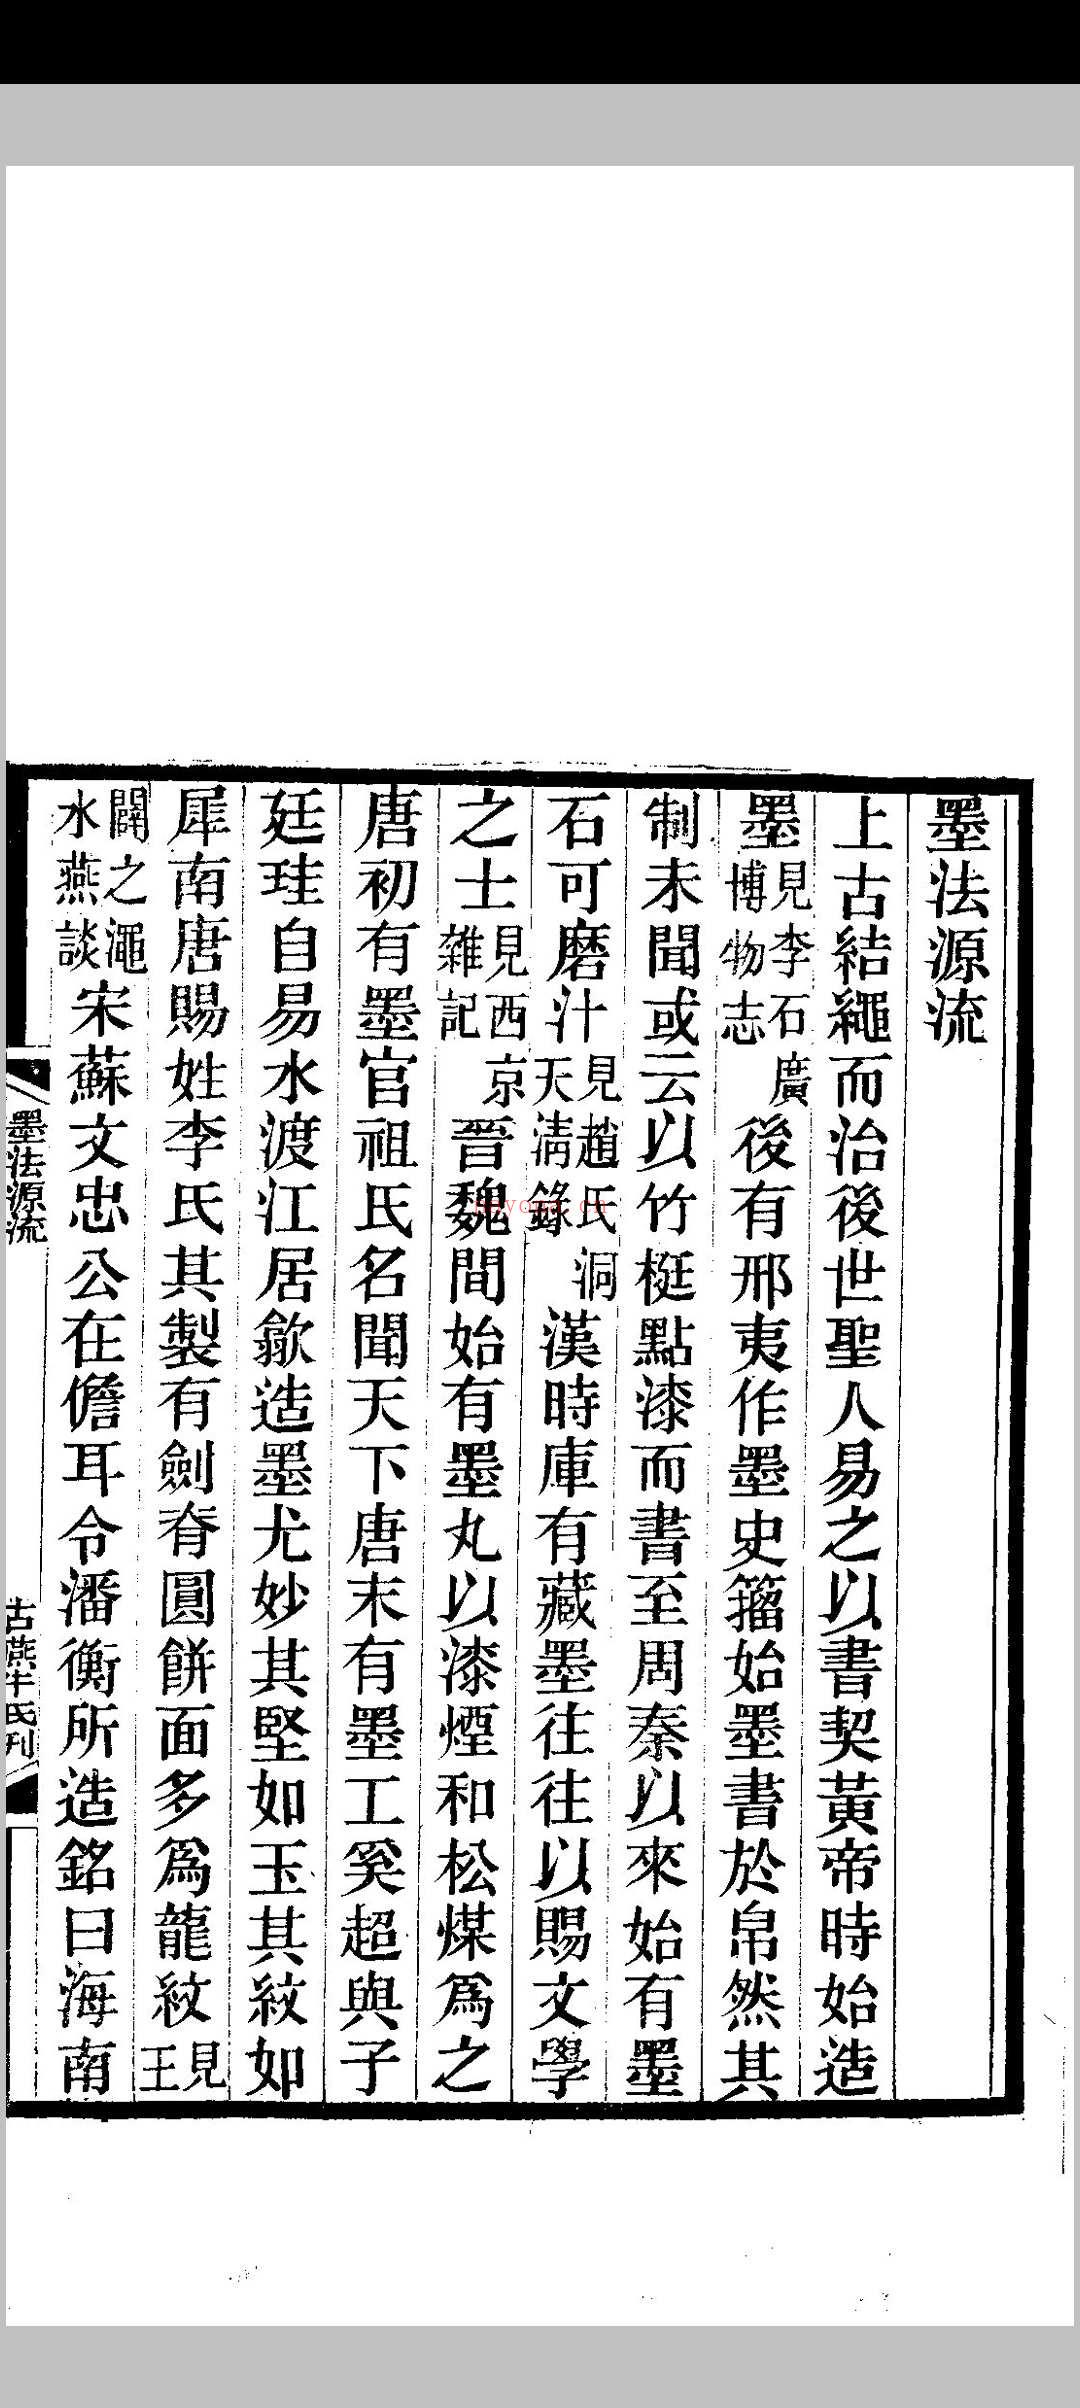 墨法源流
上古結繩而治後世聖人易之以書契黃帝時始造
墨見李石廣博物志後有邢夷作墨史籀始墨書於帛然其
制未聞或云以竹梃點漆而書至周秦以來始有墨
石可磨汁見趙氏洞天淸錄漢時庫有藏墨往往以賜文學
之士見西京雜記晉魏間始有墨丸以漆煙和松煤爲之
唐初有墨官祖氏名聞天下唐末有墨工奚超與子
廷珪自易水渡江居歙造墨尤妙其堅如玉其紋如
犀南唐賜姓李氏其製有劍脊圓餅面多爲龍紋見王
闢之澠水燕談宋蘇文忠公在儋耳令潘衡所造銘曰海南
墨法源流
古燕牛氏刊